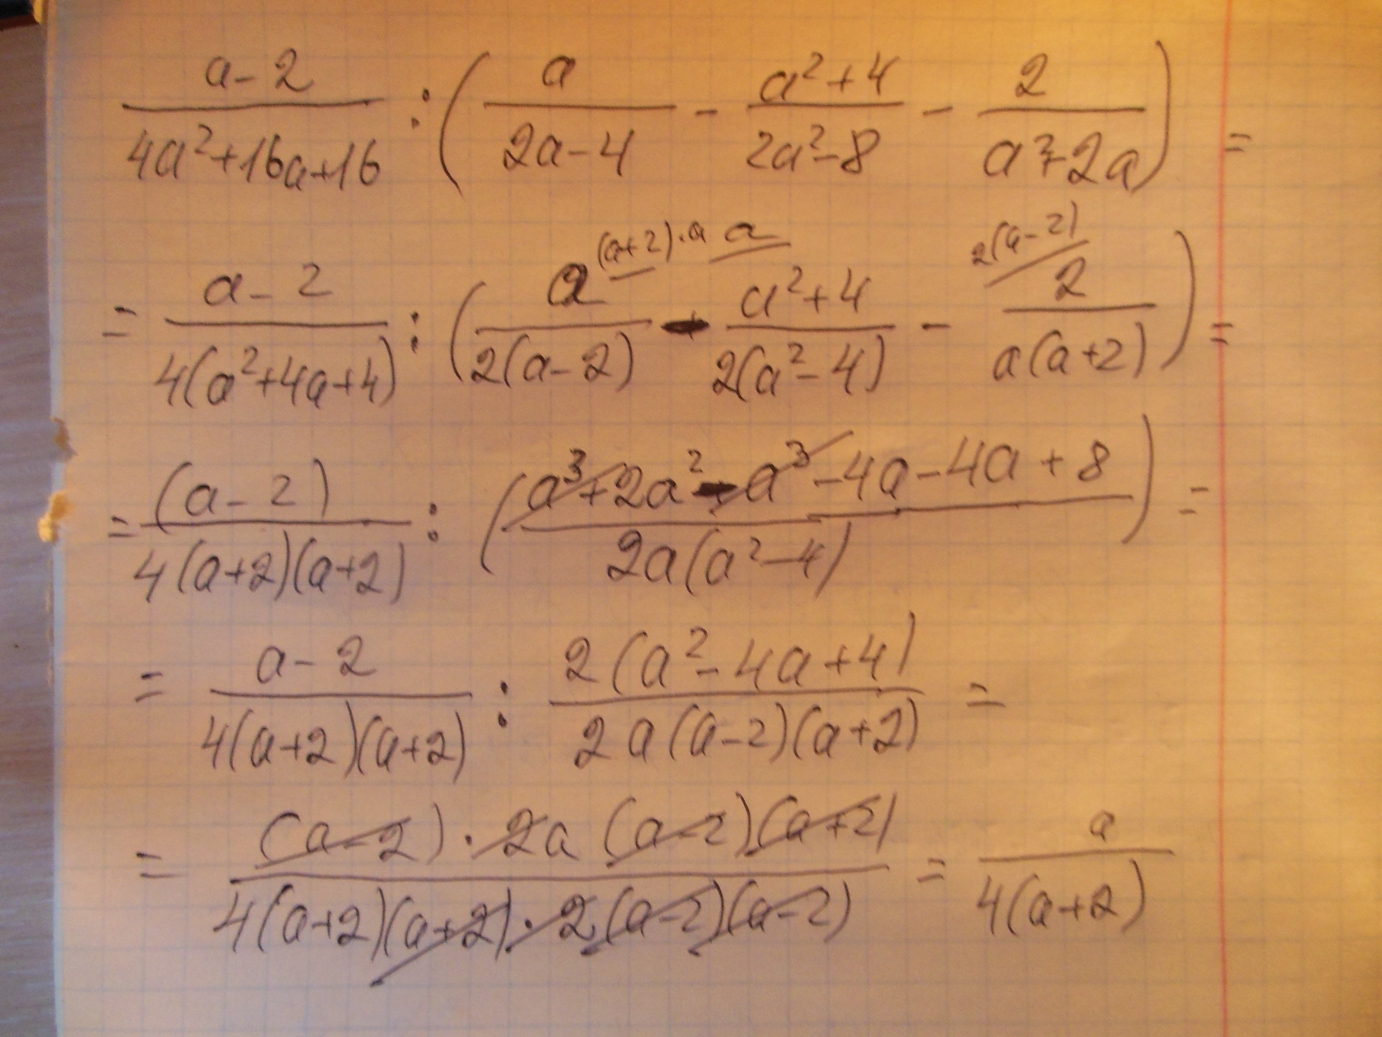 (a-2)/(4a²+16a+16) : (a/(2a-4) - (a²+4)/(2a²-8) - 2/(a²+2a)) =
= (a-2)/(4(a²+4a+4)) : (a^{(a+2)·a}/(2(a-2)) - ^{a}(a²+4)/(2(a²-4)) - ^{2(a-2)}2/(a(a+2))) =
= (a-2)/(4(a+2)(a+2)) : ((a³+2a²-a³-4a-4a+8)/(2a(a²-4))) =
= (a-2)/(4(a+2)(a+2)) : (2(a²-4a+4))/(2a(a-2)(a+2)) =
= ((a-2)·2a(a-2)(a+2))/(4(a+2)(a+2)·2(a-2)(a-2)) = a/(4(a+2))